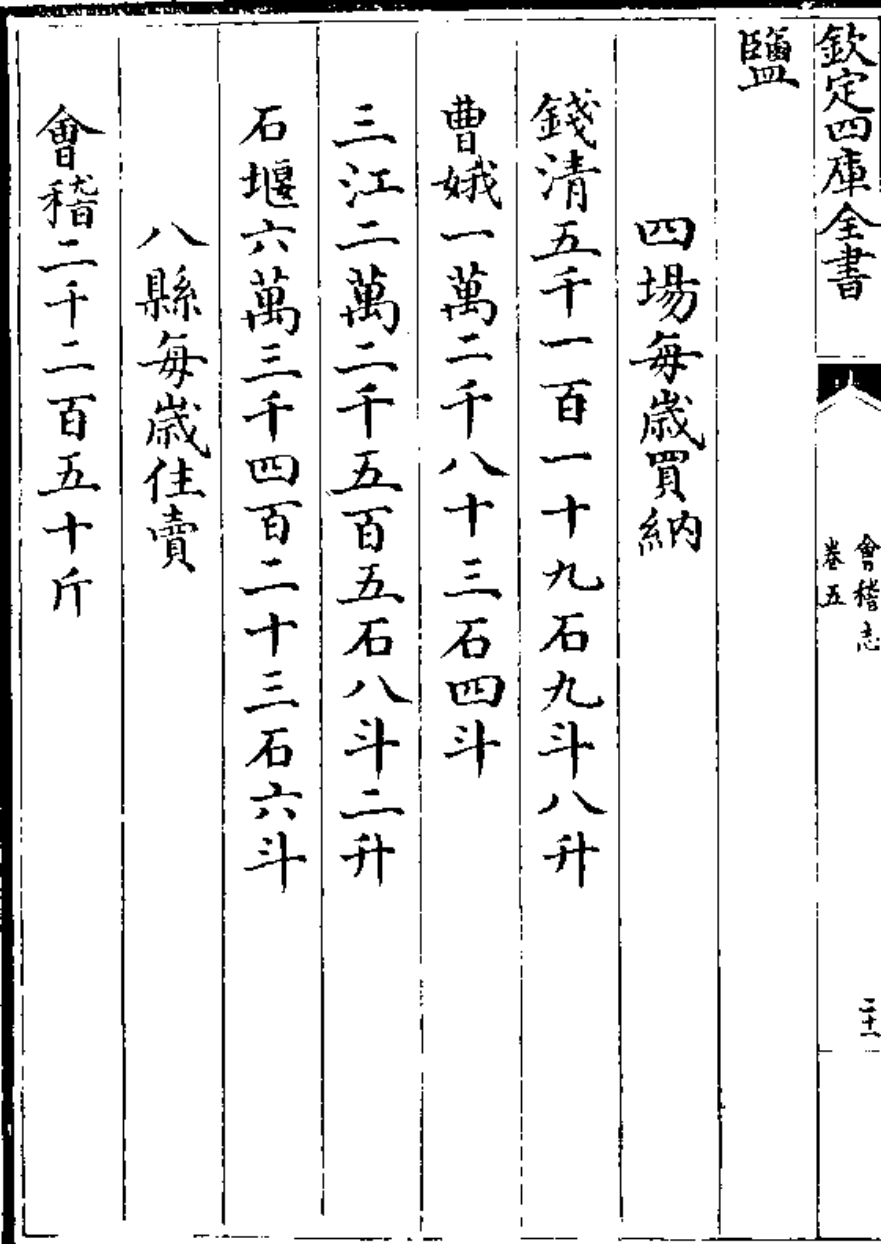 欽定四庫全書
會稽志
卷五
二十一
鹽
四場每歲買納
錢清五千一百一十九石九斗八升
曹娥一萬二千八十三石四斗
三江二萬二千五百五石八斗二升
石堰六萬三千四百二十三石六斗
八縣每歲住賣
會稽二千二百五十斤